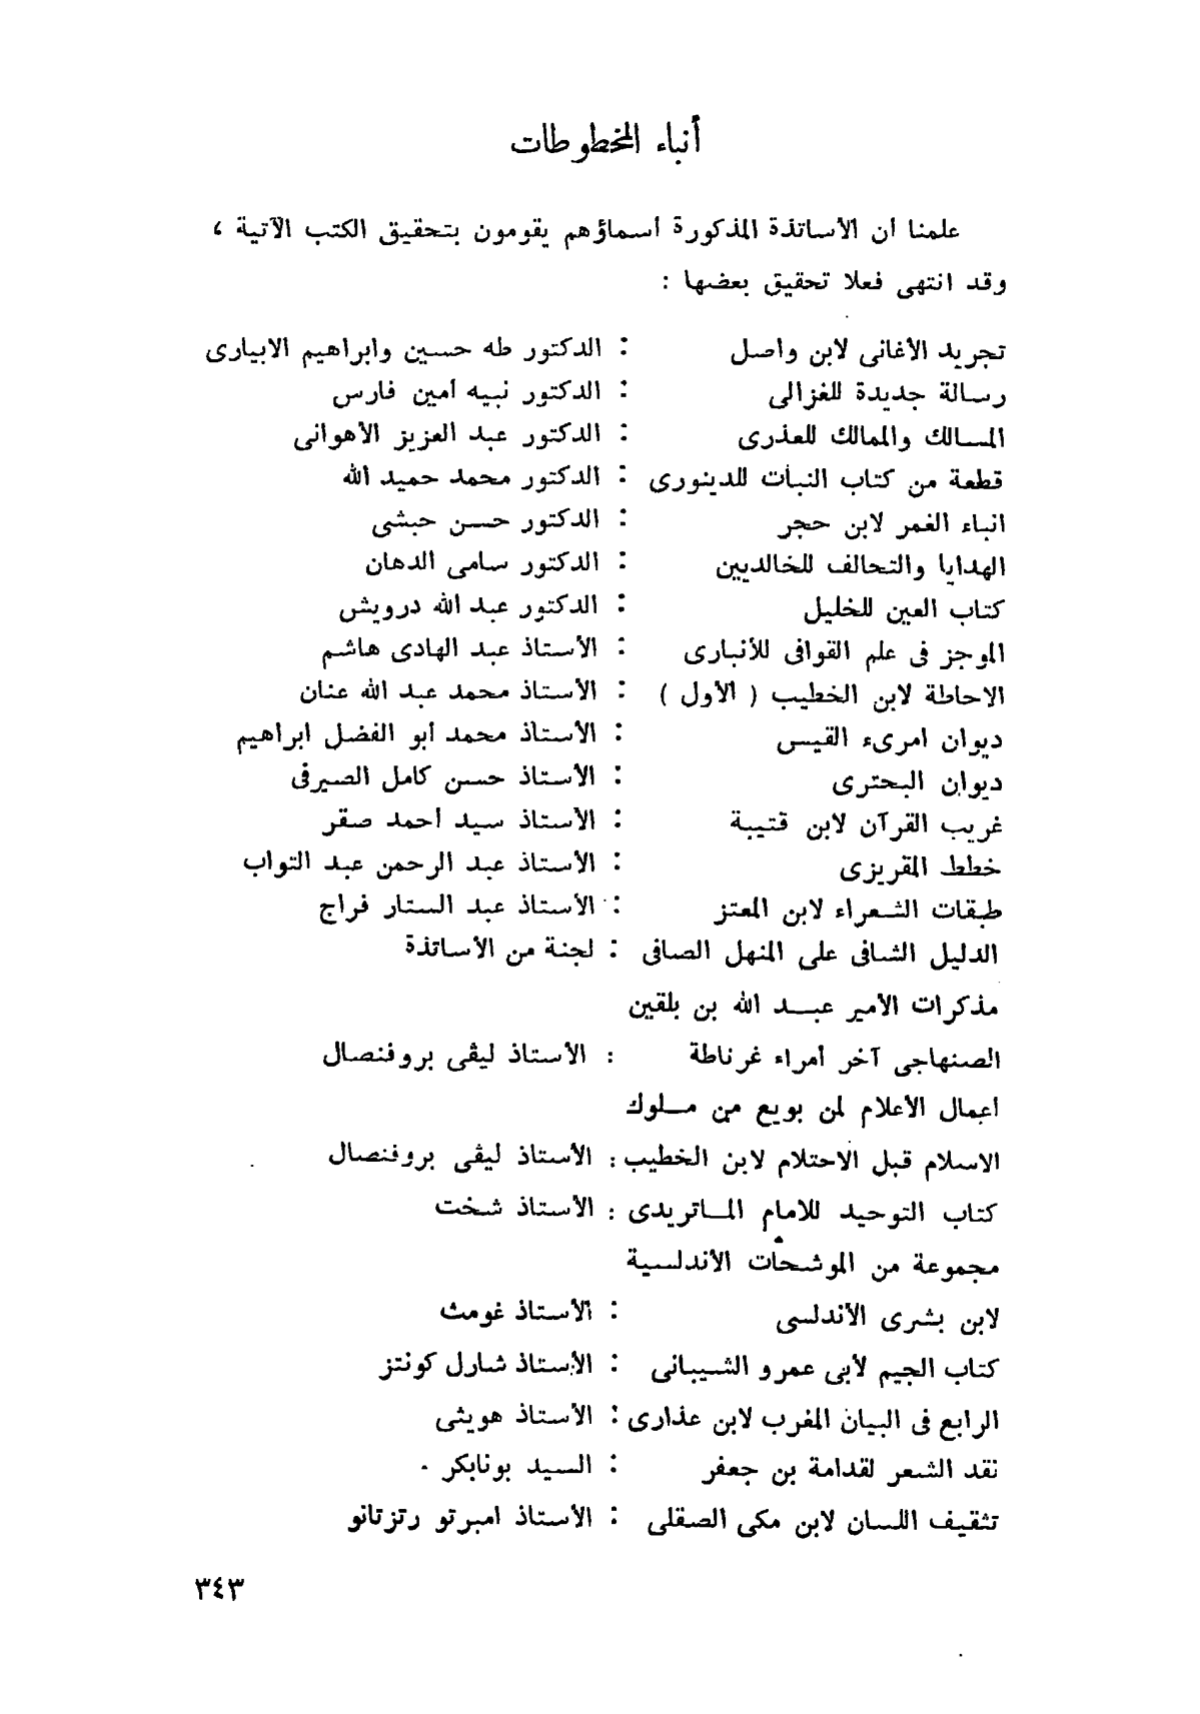 أنباء المخطوطات
علمنا ان الأساتذة المذكورة أسماؤهم يقومون بتحقيق الكتب الآتية ،
وقد انتهى فعلا تحقيق بعضها :
تجريد الأغانى لابن واصل : الدكتور طه حسين وابراهيم الابيارى
رسالة جديدة للغزالى : الدكتور نبيه أمين فارس
المسالك والممالك للعذرى : الدكتور عبد العزيز الأهوانى
قطعة من كتاب النبات للدينورى : الدكتور محمد حميد الله
انباء الغمر لابن حجر : الدكتور حسن حبشى
الهدايا والتحالف للخالديين : الدكتور سامى الدهان
كتاب العين للخليل : الدكتور عبد الله درويش
الموجز فى علم القوافى للأنبارى : الأستاذ عبد الهادى هاشم
الاحاطة لابن الخطيب ( الأول ) : الأستاذ محمد عبد الله عنان
ديوان امرىء القيس : الأستاذ محمد أبو الفضل ابراهيم
ديوان البحترى : الأستاذ حسن كامل الصيرفى
غريب القرآن لابن قتيبة : الأستاذ سيد أحمد صقر
خطط المقريزى : الأستاذ عبد الرحمن عبد التواب
طبقات الشعراء لابن المعتز : الأستاذ عبد الستار فراج
الدليل الشافى على المنهل الصافى : لجنة من الأساتذة
مذكرات الأمير عبد الله بن بلقين
الصنهاجى آخر أمراء غرناطة : الأستاذ ليڤى بروفنصال
أعمال الأعلام لمن بويع من ملوك
الاسلام قبل الاحتلام لابن الخطيب : الأستاذ ليڤى بروفنصال
كتاب التوحيد للامام الماتريدى : الأستاذ شخت
مجموعة من الموشحات الأندلسية
لابن بشرى الأندلسى : الأستاذ غومث
كتاب الجيم لأبى عمرو الشيبانى : الأستاذ شارل كونتز
الرابع فى البيان المغرب لابن عذارى : الأستاذ هويثى
نقد الشعر لقدامة بن جعفر : السيد بونابكر .
تثقيف اللسان لابن مكى الصقلى : الأستاذ امبرتو رتزتانو
٣٤٣